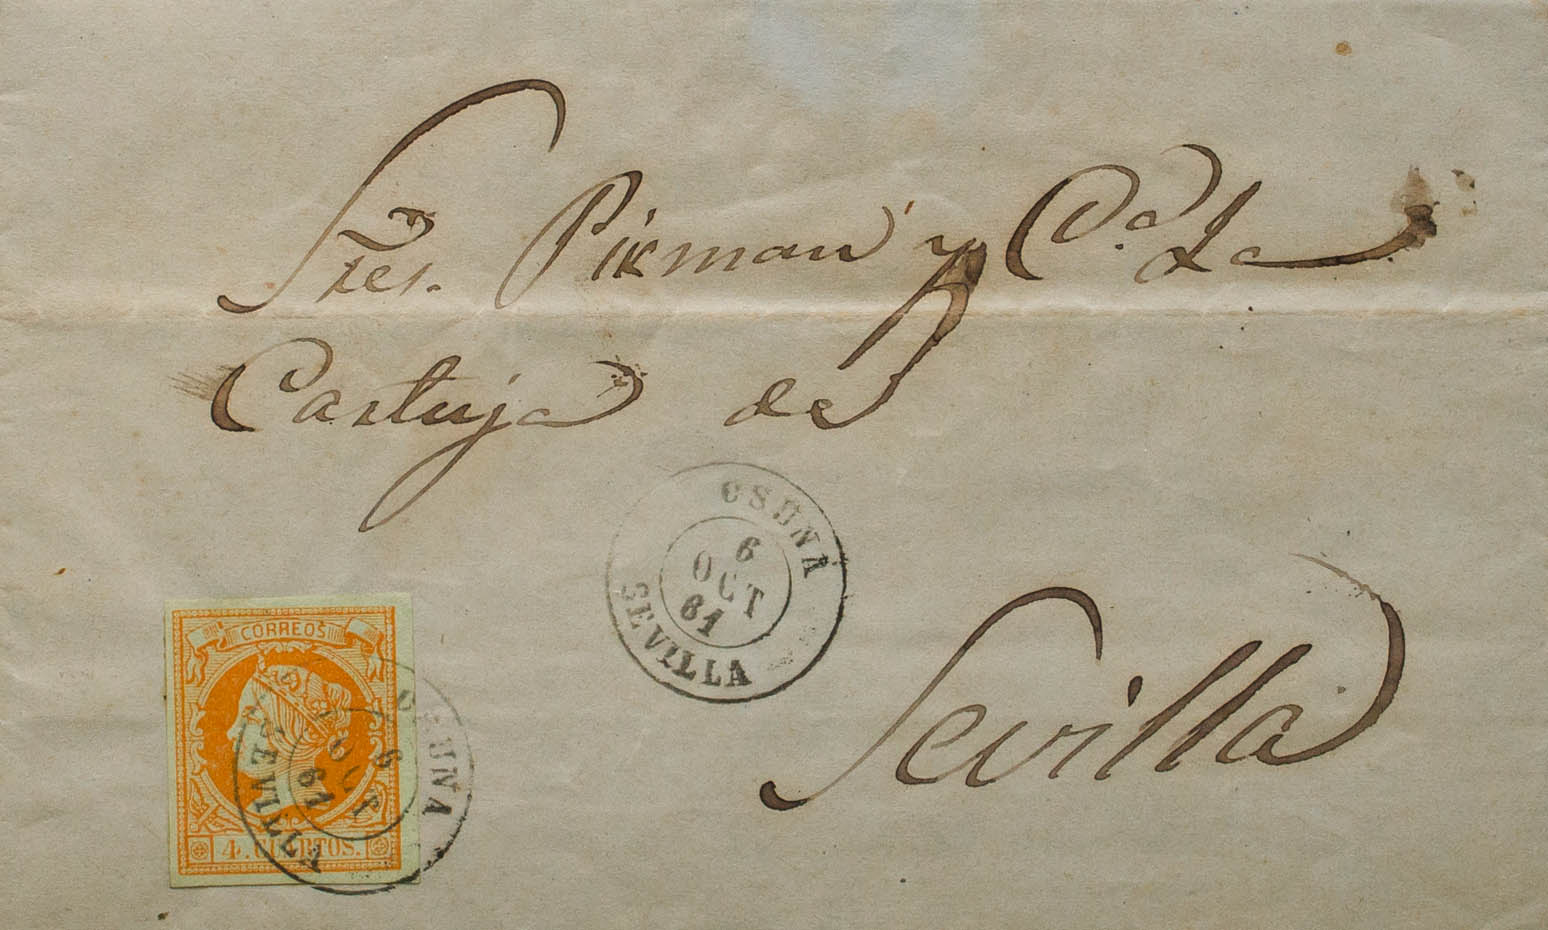 Sres. Pikman y Ca. La
Cartuja de
Sevilla
OSUNA
6
OCT
61
SEVILLA
CORREOS
4. CUARTOS.
OSUNA
6
OCT
61
SEVILLA